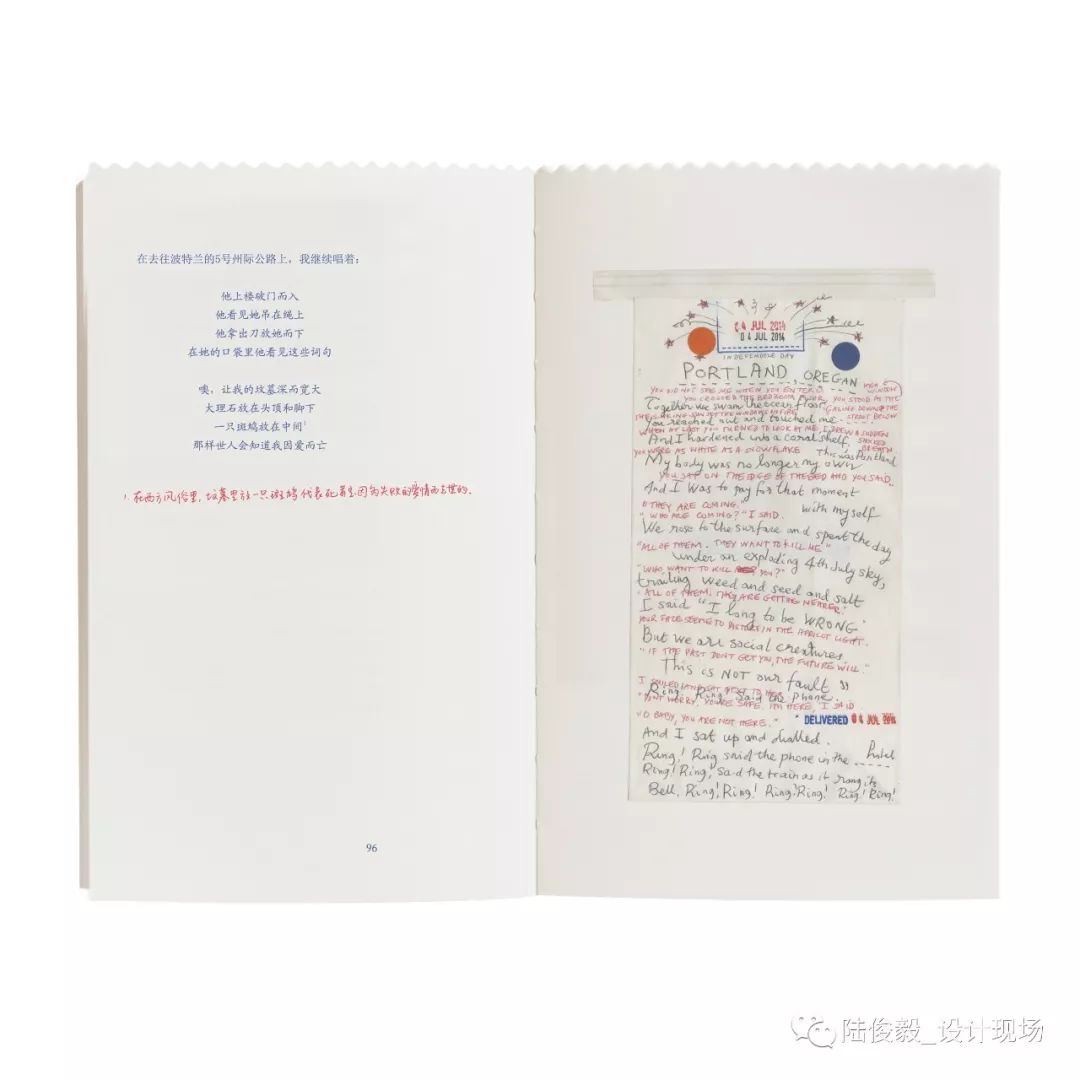 在去往波特兰的5号州际公路上，我继续唱着：
他上楼破门而入
他看见她吊在绳上
他拿出刀放她而下
在她的口袋里他看见这些词句
噢，让我的坟墓深而宽大
大理石放在头顶和脚下
一只斑鸠放在中间1
那样世人会知道我因爱而亡
1. 在西方风俗里，坟墓里放一只斑鸠代表死者是因为失败的爱情而去世的.
96
04 JUL 2014
04 JUL 2014
INDEPENDENCE DAY
PORTLAND, OREGAN
YOU DID NOT SEE ME WHEN YOU ENTERED.
YOU CROSSED THE BEDROOM FLOOR, YOU STOOD AT THE WINDOW
Together we swam the ocean floor
GAZING DOWN @ THE STREET BELOW
You reached out and touched me
WHEN AT LAST YOU TURNED TO LOOK AT ME, I DREW A SUDDEN
And I hardened into a coral shelf,
SHOCKED BREATH
YOU WERE AS WHITE AS A SNOWFLAKE This was Portland
My body was no longer my own
YOU SAT ON THE EDGE OF THE BED AND YOU SAID
And I was to pay for that moment
"THEY ARE COMING." with myself
"WHO ARE COMING?" I SAID.
We rose to the surface and spent the day
"ALL OF THEM. THEY WANT TO KILL ME"
under an exploding 4th July sky,
"WHO WANT TO KILL YOU?"
trailing weed and seed and salt
"ALL OF THEM. THEY ARE GETTING NEARER."
I said "I long to be WRONG
YOUR FACE SEEMED TO IN THE APRICOT LIGHT.
But we are social creatures
"IF THE PAST DON'T GET YOU, THE FUTURE WILL."
This is NOT our fault"
I SMILED AND SAT NEXT TO HER
Ring! Ring, said the phone.
"DON'T WORRY, YOU'RE SAFE. I'M HERE, I SAID
"O BABY, YOU ARE NOT HERE." DELIVERED 04 JUL 2014
And I sat up and dialled.
Ring! Ring said the phone in the hotel
Ring! Ring! said the train as it rang its
Bell. Ring! Ring! Ring! Ring! Ring! Ring!
陆俊毅_设计现场